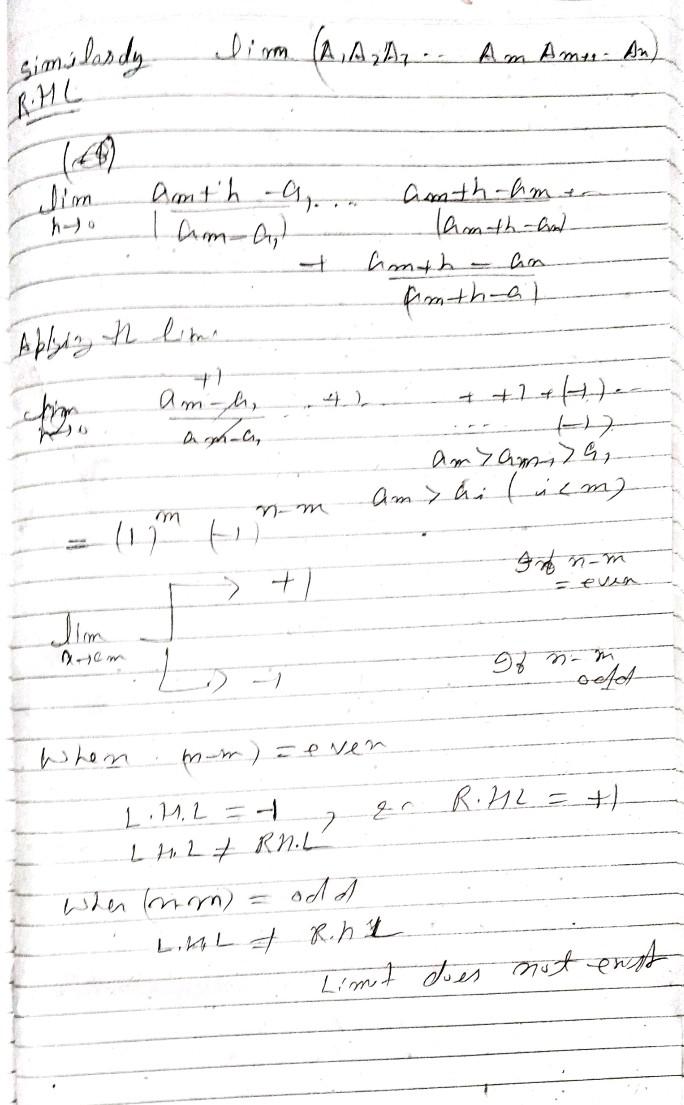 similardy lim (A₁A₂A₃ .. Am Am+1 .. An)
R.H.L
lim am+h - a₁ .... am+h - am +
h→0 |am - a₁| |am+h - am|
+ am+h - an
|am+h - a|
Applying h lim.
+1
lim am - a₁ . +1 . + +1 + (-1) ..
h→0 am - a₁ ... (-1)
am > am-1 > a₁
= (1)^m (-1)^n-m am > ai (i < m)
→ +1 If n-m
= even
lim
x→am
→ -1 If n-m
odd
When (n-m) = even
L.H.L = -1 , R.H.L = +1
L.H.L ≠ R.H.L
when (n-m) = odd
L.H.L ≠ R.h.L
Limit does not exist